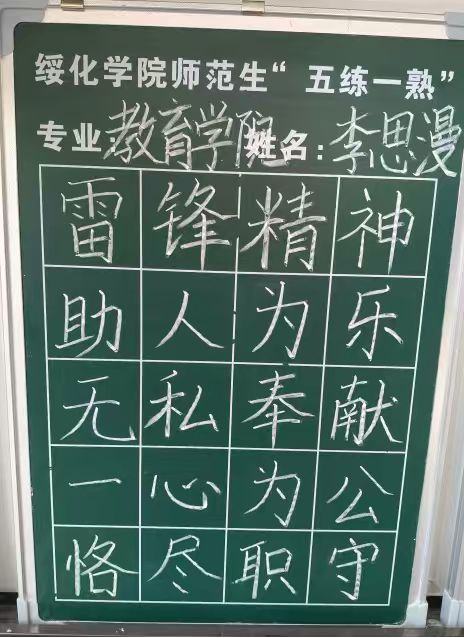 绥化学院师范生“五练一熟”
专业:教育学院 姓名:李思漫
雷锋精神
助人为乐
无私奉献
一心为公
恪尽职守